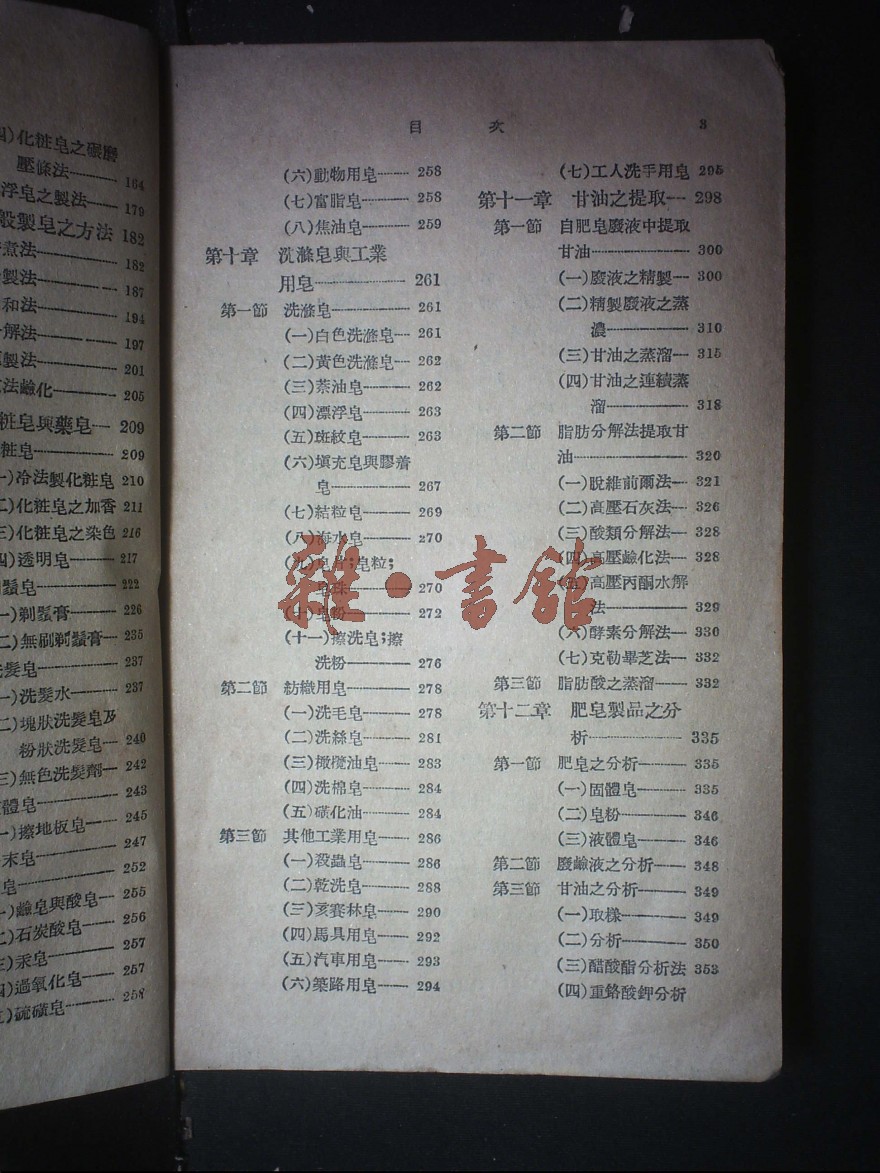 四)化粧皂之碾磨
壓條法 164
浮皂之製法 179
般製皂之方法 182
煮法 182
製法 187
和法 194
解法 197
製法 201
法鹼化 205
粧皂與藥皂 209
粧皂 209
一)冷法製化粧皂 210
二)化粧皂之加香 211
三)化粧皂之染色 216
四)透明皂 217
鬚皂 222
一)剃鬚膏 226
二)無刷剃鬚膏 235
洗髮皂 237
一)洗髮水 237
二)塊狀洗髮皂及
粉狀洗髮皂 240
三)無色洗髮劑 242
體皂 243
一)擦地板皂 245
末皂 247
皂 252
一)鹼皂與酸皂 255
二)石炭酸皂 256
三)汞皂 257
四)過氧化皂 257
五)硫磺皂 258
目 次 3
(六)動物用皂 258
(七)富脂皂 258
(八)焦油皂 259
第十章 洗滌皂與工業
用皂 261
第一節 洗滌皂 261
(一)白色洗滌皂 261
(二)黃色洗滌皂 262
(三)萘油皂 262
(四)漂浮皂 263
(五)斑紋皂 263
(六)填充皂與膠着
皂 267
(七)結粒皂 269
(八)海水皂 270
(九)皂片;皂粒;
皂珠 270
(十)皂粉 272
(十一)擦洗皂;擦
洗粉 276
第二節 紡織用皂 278
(一)洗毛皂 278
(二)洗絲皂 281
(三)橄欖油皂 283
(四)洗棉皂 284
(五)磺化油 284
第三節 其他工業用皂 286
(一)殺蟲皂 286
(二)乾洗皂 288
(三)亥賽林皂 290
(四)馬具用皂 292
(五)汽車用皂 293
(六)築路用皂 294
(七)工人洗手用皂 295
第十一章 甘油之提取 298
第一節 自肥皂廢液中提取
甘油 300
(一)廢液之精製 300
(二)精製廢液之蒸
濃 310
(三)甘油之蒸溜 315
(四)甘油之連續蒸
溜 318
第二節 脂肪分解法提取甘
油 320
(一)脫維前爾法 321
(二)高壓石灰法 326
(三)酸類分解法 328
(四)高壓鹼化法 328
(五)高壓丙酮水解
法 329
(六)酵素分解法 330
(七)克勒畢芝法 332
第三節 脂肪酸之蒸溜 332
第十二章 肥皂製品之分
析 335
第一節 肥皂之分析 335
(一)固體皂 335
(二)皂粉 346
(三)液體皂 346
第二節 廢鹼液之分析 348
第三節 甘油之分析 349
(一)取樣 349
(二)分析 350
(三)醋酸酯分析法 353
(四)重鉻酸鉀分析
雜·書館